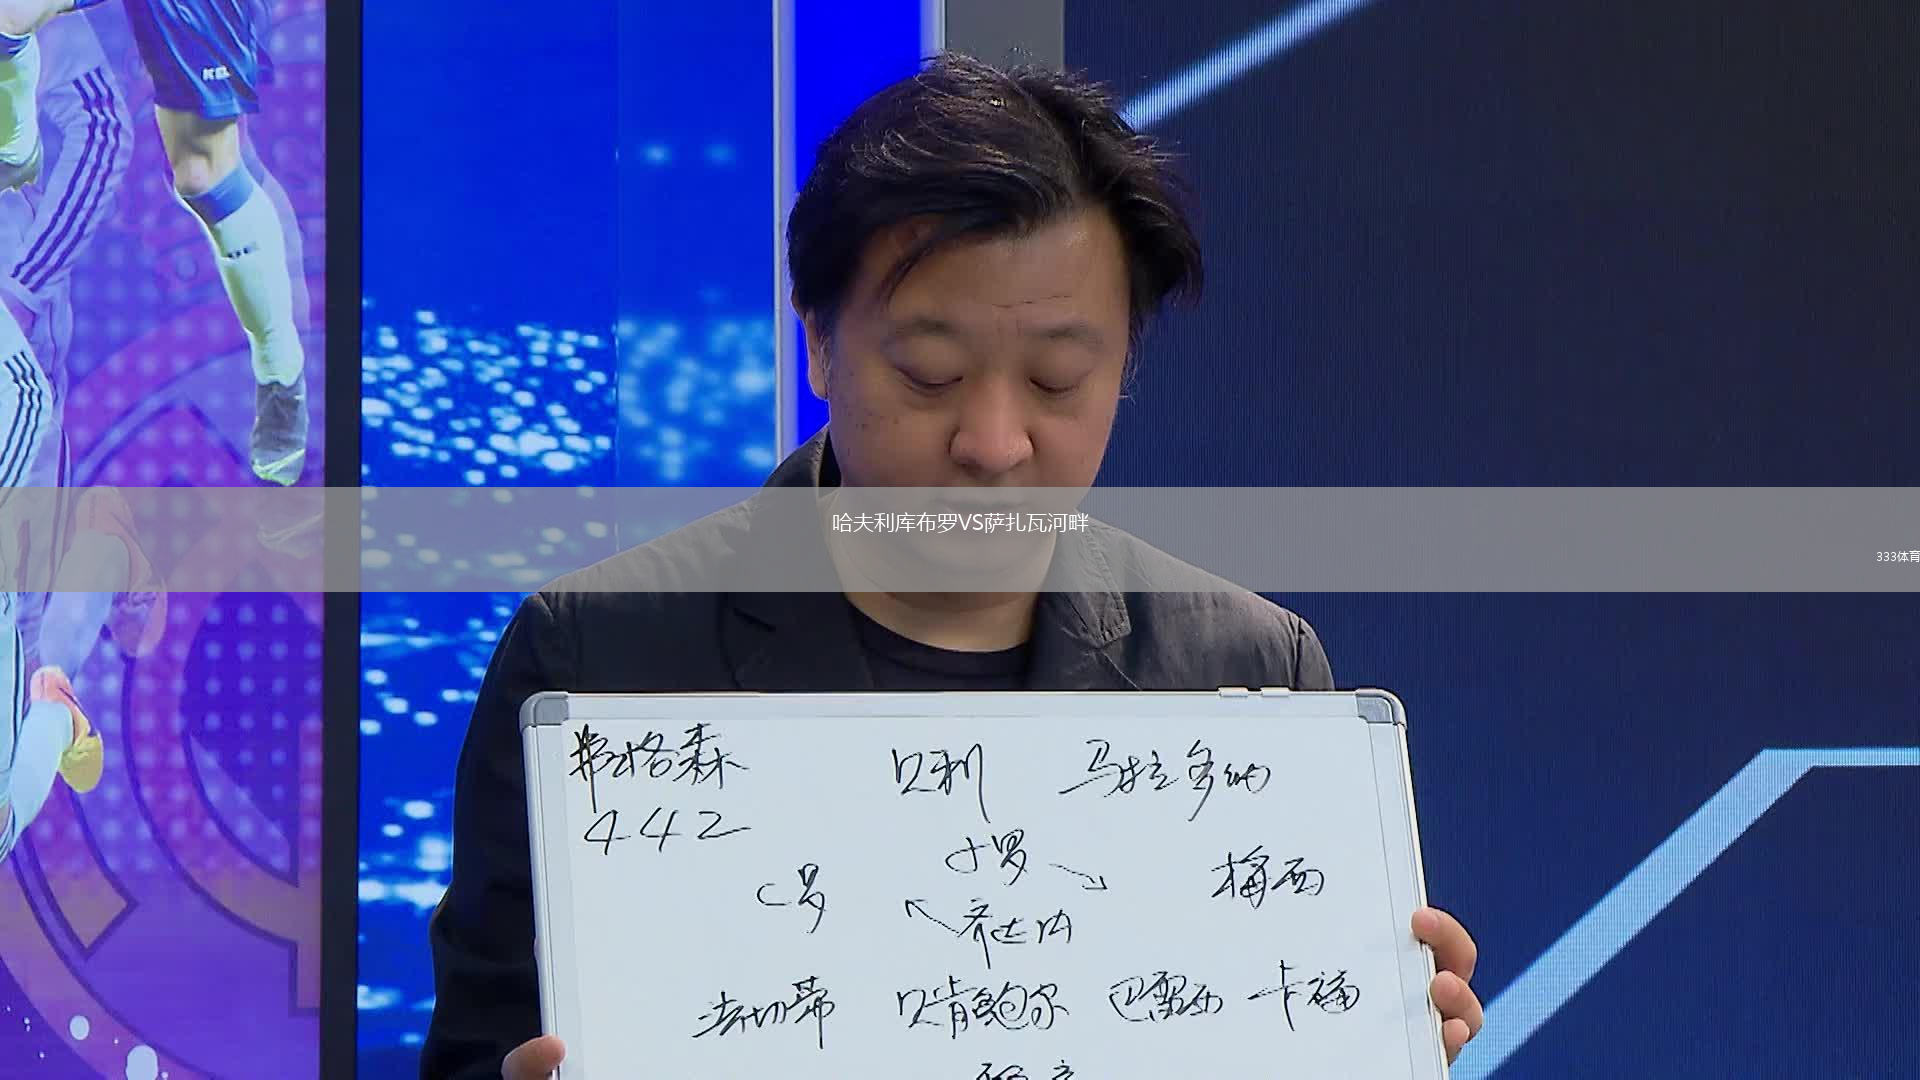 KEL
哈夫利库布罗VS萨扎瓦河畔
333体育
弗格森 贝利 马拉多纳
442
小罗
C罗 梅西
齐达内
法切蒂 贝肯鲍尔 巴雷西 卡福